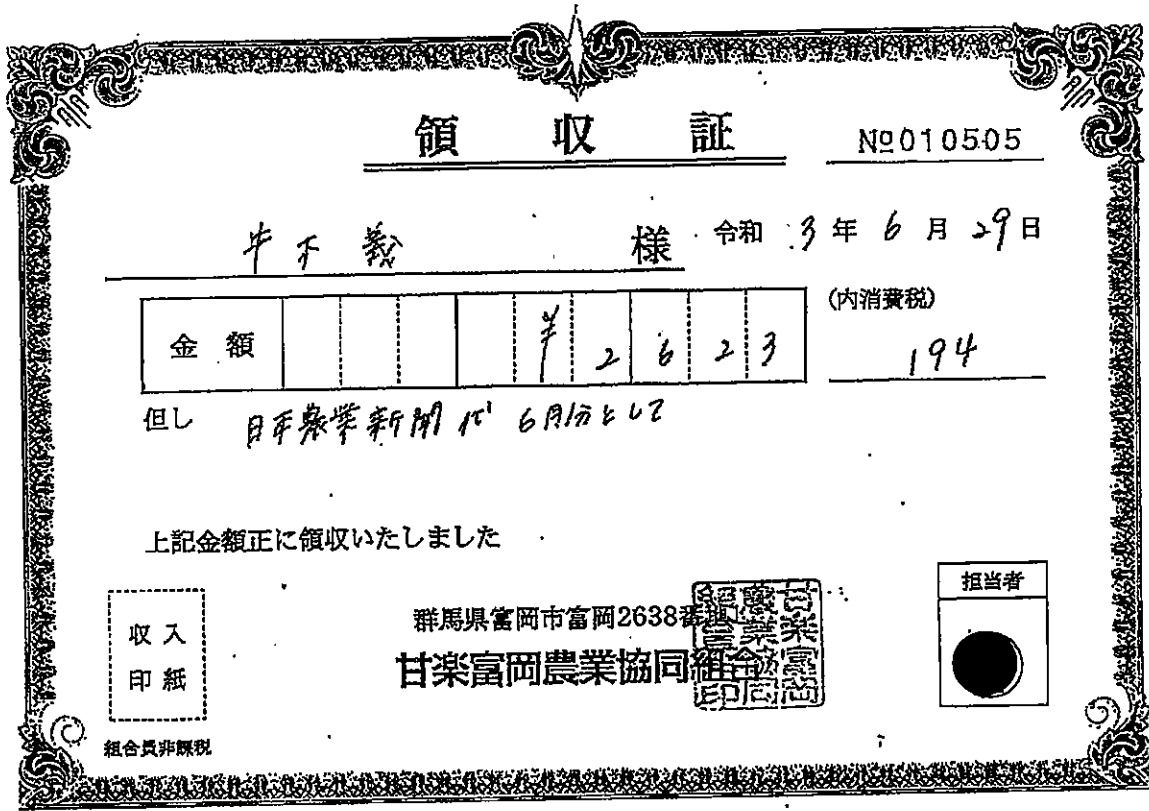 領収証
№010505
井下 義 様
令和 3年 6月 29日
金額 ¥2623
(内消費税)
194
但し 日本農業新聞代 6月分として
上記金額正に領収いたしました
担当者
収入
印紙
群馬県富岡市富岡2638番地
甘楽富岡農業協同組合
甘楽富岡農業協同組合印
組合員非課税